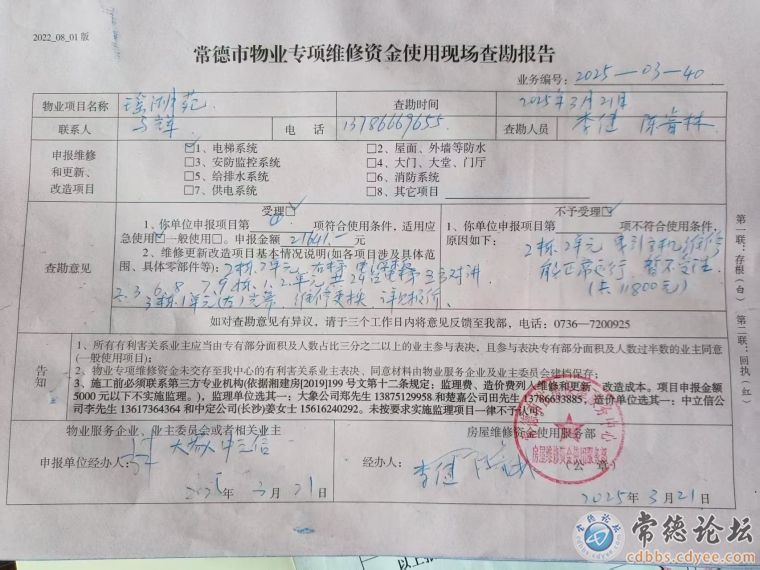 2022_08_01 版
常德市物业专项维修资金使用现场查勘报告
业务编号:2025—03—40
物业项目名称 瑶湖苑 查勘时间 2025年3月21日
联系人 电话 13786669655 查勘人员 李健
申报维修和更新、改造项目
☑1、电梯系统 □2、屋面、外墙等防水
□3、安防监控系统 □4、大门、大堂、门厅
□5、给排水系统 □6、消防系统
□7、供电系统 □8、其它项目
查勘意见
受理☑
1、你单位申报项目第 项符合使用条件,适用应
急使用☑一般使用□。申报金额21641.—元
2、维修更新改造项目基本情况说明(如各项目涉及具体范
围、具体零部件等):2栋2单元
2、3、6、8、7、9栋、1、2单元 三方对讲
3栋1单元 维修更换
不予受理☑
1、你单位申报项目第 项不符合使用条件,
原因如下:2栋2单元 曳引主机维修
能正常运行,暂不受理
(共11800元)
如对查勘意见有异议,请于三个工作日内将意见反馈至我部,电话:0736—7200925
告知
1、所有有利害关系业主应当由专有部分面积及人数占比三分之二以上的业主参与表决,且参与表决专有部分面积及人数过半数的业主同意
(一般使用项目);
2、物业专项维修资金未交存至我中心的有利害关系业主表决、同意材料由物业服务企业及业主委员会建档保存;
3、施工前必须联系第三方专业机构(依据湘建房[2019]199 号文第十二条规定:监理费、造价费列入维修和更新、改造成本。项目申报金额
5000 元以下不实施监理。),监理单位选其一:大象公司郑先生 13875129958 和楚嘉公司田先生 13786633885,造价单位选其一:中立信公
司李先生 13617364364 和中定公司(长沙)姜女士 15616240292。未按要求实施监理项目一律不予认可。
物业服务企业、业主委员会或者相关业主
大象 中立信
申报单位经办人:
2025年3月21日
房屋维修资金使用服务部
经办人:李健
(公 章)
房屋维修资金使用服务部
2025年3月21日
第一联:存根(白) 第二联:回执(红)
常德论坛
cdbbs.cdyee.com